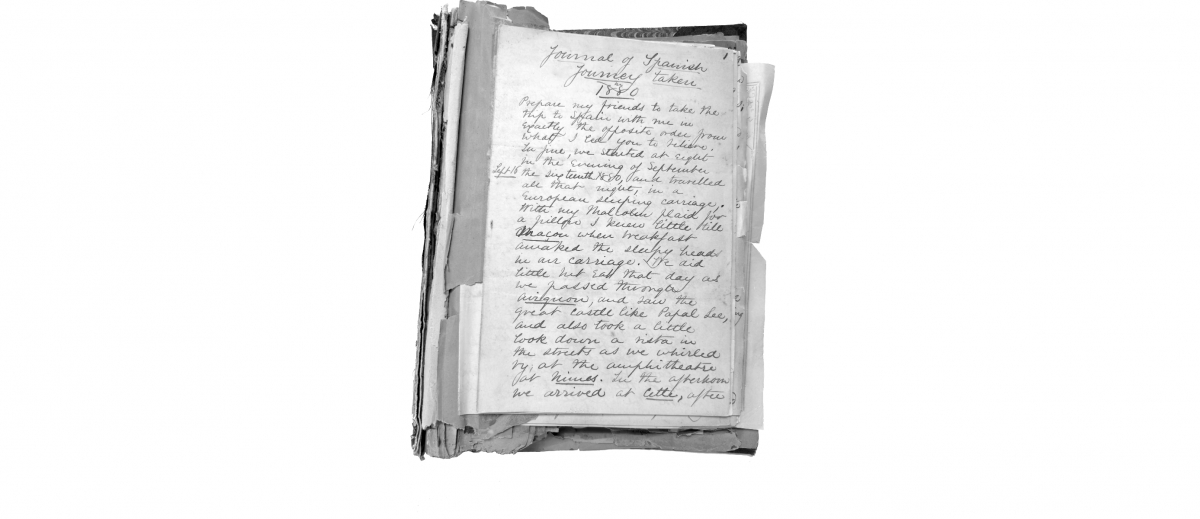 1
Journal of Spanish
Journey taken
1880
Prepare my friends to take the
trip to Spain with me in
exactly the opposite order from
what I led you to believe.
In fine, we started at eight
in the evening of September
Sept 16 the sixteenth 1880, and travelled
all that night, in a
European sleeping carriage.
With my Malcolm plaid for
a pillow I knew little till
Macon when breakfast
awaked the sleepy heads
in our carriage. We did
little but eat that day as
we passed through
Avignon, and saw the
great castle like Papal See,
and also took a little
look down a vista in
the streets as we whirled
by, at the amphitheatre
at Nimes. In the afternoon
we arrived at Cette, after